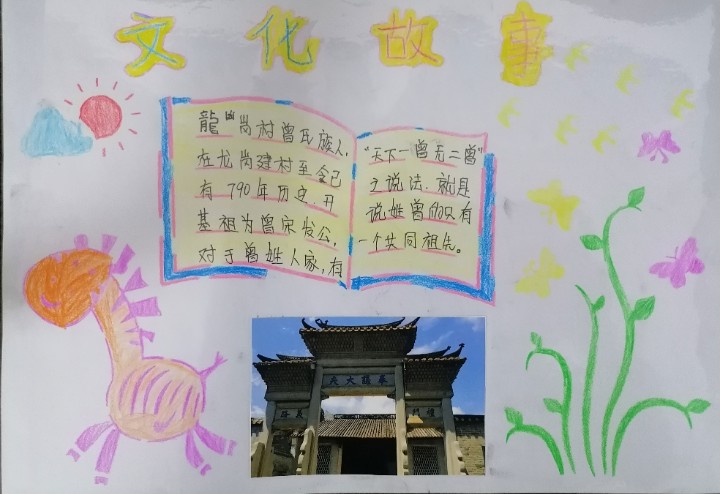 文化故事
龍岗村曾氏族人,
在龙岗建村至今已
有790年历史,开
基祖为曾宋发公,
对于曾姓人家,有
"天下一曾无二曾"
之说法,就是
说姓曾的只有
一个共同祖先。
奉議大夫